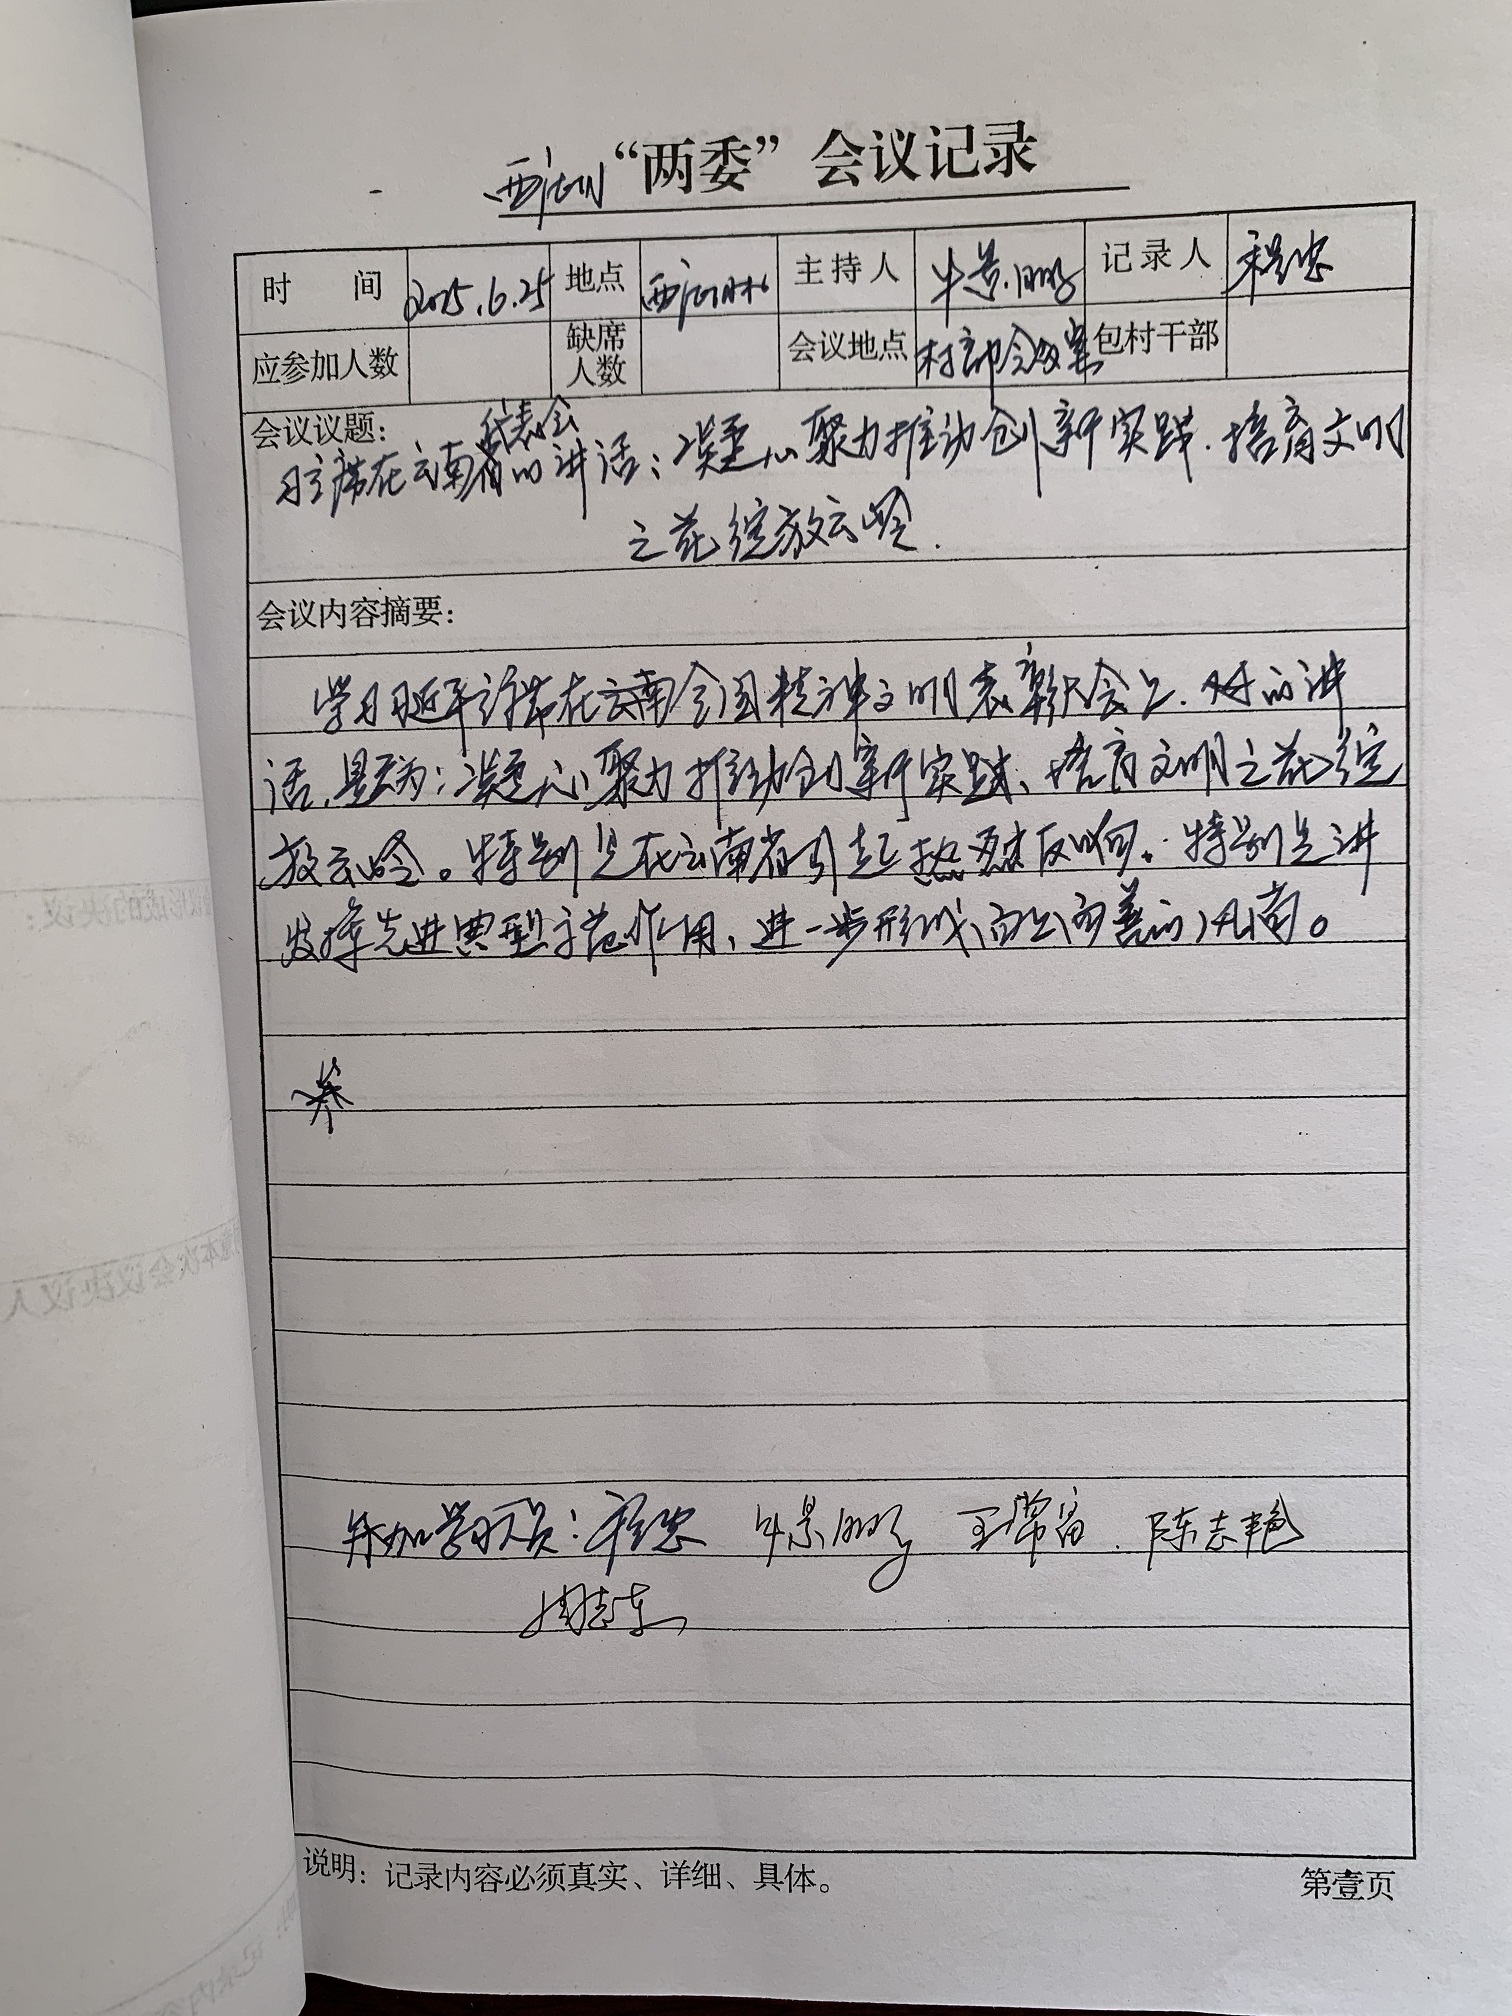 “两委”会议记录
时 间 2025.6.25 地点 主持人 牛景鹏 记录人
应参加人数 缺席人数 会议地点 村部会议室 包村干部
会议议题:
代表会
习主席在云南省的讲话:凝心聚力推动创新实践.培育文明
之花绽放云岭.
会议内容摘要:
学习习近平主席在云南全国精神文明表彰会上.对的讲
话,题为:凝心聚力推动创新实践、培育文明之花绽
放云岭。特别是在云南省引起热烈反响.特别是讲
发挥先进典型示范作用,进一步形成向上向善的风尚。
参加学习人员: 牛景鹏 王常富 陈志艳
周志东
说明:记录内容必须真实、详细、具体。
第壹页